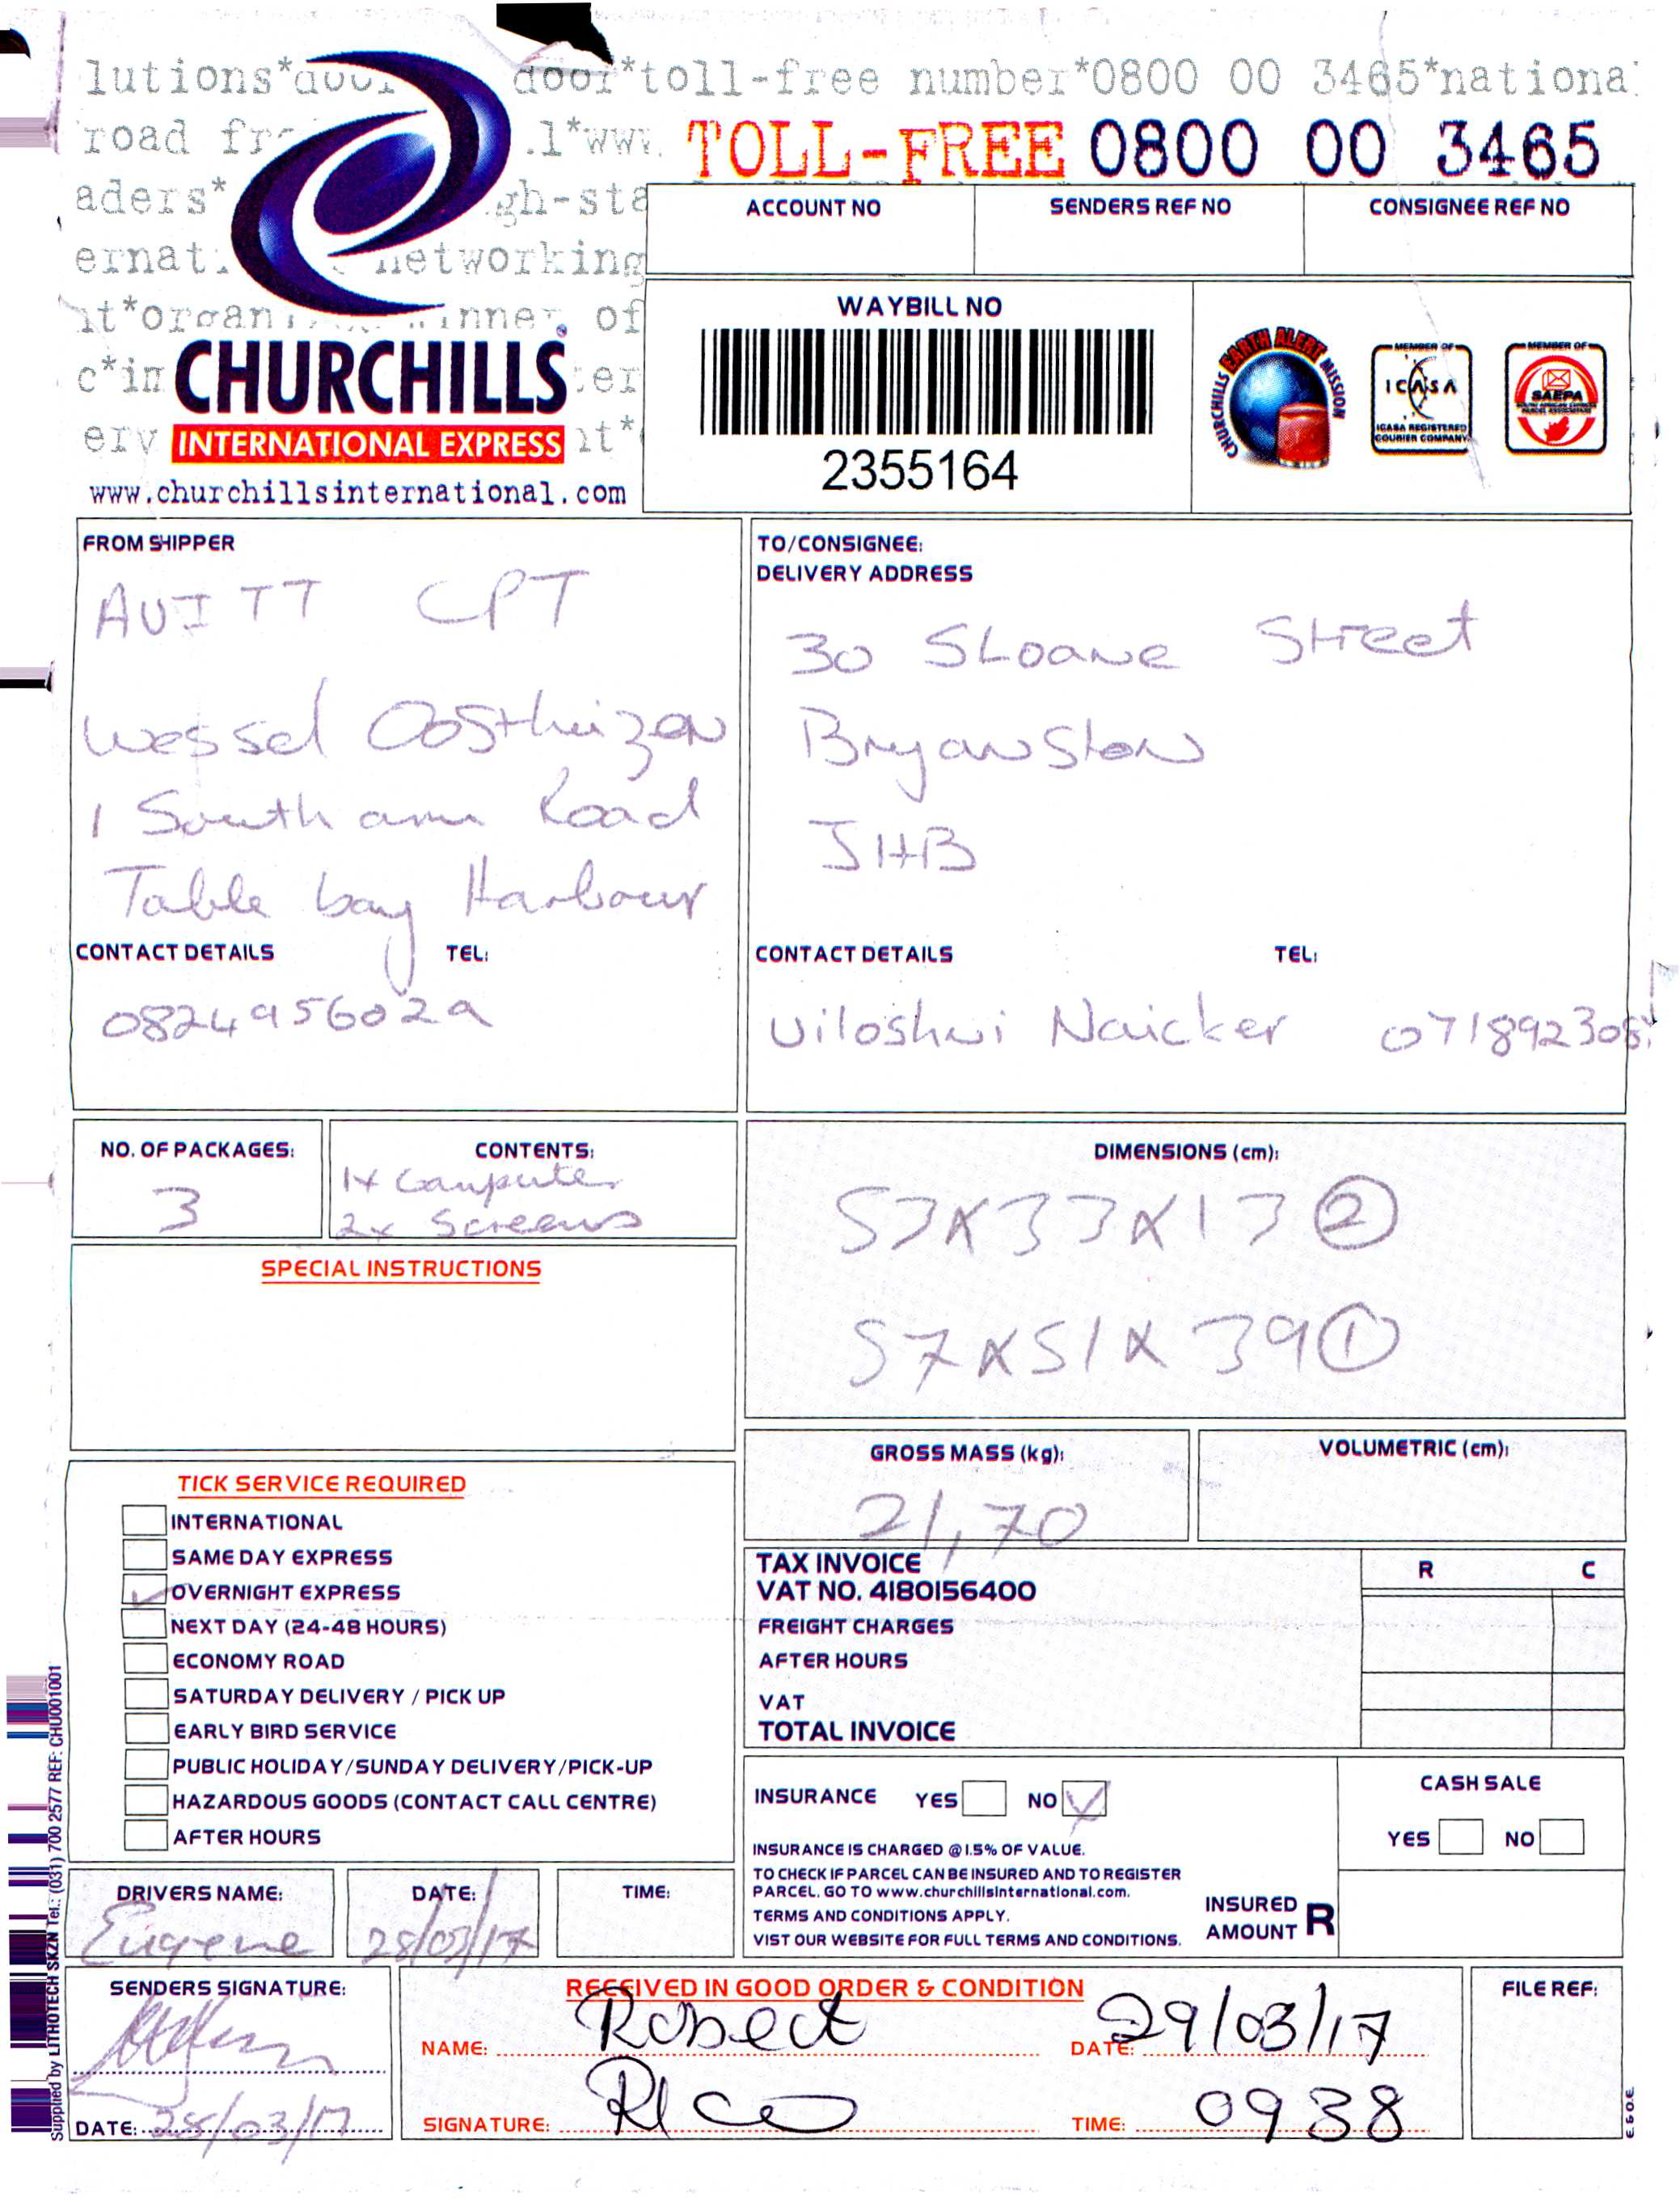 lutions* door*toll-free number*0800 00 3465*national
road .l*www. TOLL-FREE 0800 00 3465
aders* gh-sta
ernat networking
nt*organ inner of
c*in ter
erv nt*
CHURCHILLS
INTERNATIONAL EXPRESS
www.churchillsinternational.com
ACCOUNT NO
SENDERS REF NO
CONSIGNEE REF NO
WAYBILL NO
2355164
CHURCHILLS EARTH ALERT MISSION
MEMBER OF
ICASA
ICASA REGISTERED
COURIER COMPANY
MEMBER OF
SAEPA
FROM SHIPPER
AVITT CPT
Wessel Oosthuizen
1 South arm Road
Table bay Harbour
CONTACT DETAILS TEL:
0824956029
TO/CONSIGNEE:
DELIVERY ADDRESS
30 SLoane Street
Bryanston
JHB
CONTACT DETAILS TEL:
Viloshni Naicker 071892308
NO. OF PACKAGES:
3
CONTENTS:
1x Computer
2x Screens
DIMENSIONS (cm):
53x33x13 ②
57x51x39 ①
SPECIAL INSTRUCTIONS
GROSS MASS (kg):
21,70
VOLUMETRIC (cm):
TICK SERVICE REQUIRED
INTERNATIONAL
SAME DAY EXPRESS
OVERNIGHT EXPRESS
NEXT DAY (24-48 HOURS)
ECONOMY ROAD
SATURDAY DELIVERY / PICK UP
EARLY BIRD SERVICE
PUBLIC HOLIDAY/SUNDAY DELIVERY/PICK-UP
HAZARDOUS GOODS (CONTACT CALL CENTRE)
AFTER HOURS
TAX INVOICE R C
VAT NO. 4180156400
FREIGHT CHARGES
AFTER HOURS
VAT
TOTAL INVOICE
INSURANCE YES NO
INSURANCE IS CHARGED @ 1.5% OF VALUE.
TO CHECK IF PARCEL CAN BE INSURED AND TO REGISTER
PARCEL. GO TO www.churchillsinternational.com.
TERMS AND CONDITIONS APPLY.
VIST OUR WEBSITE FOR FULL TERMS AND CONDITIONS.
INSURED
AMOUNT R
CASH SALE
YES NO
DRIVERS NAME:
Eugene
DATE:
28/03/17
TIME:
SENDERS SIGNATURE:
DATE: 28/03/17
RECEIVED IN GOOD ORDER & CONDITION
NAME: Robert
DATE: 29/03/17
SIGNATURE:
TIME: 0938
FILE REF:
E.&O.E.
Supplied by LITHOTECH SKZN Tel.: (031) 700 2577 REF: CHU001001